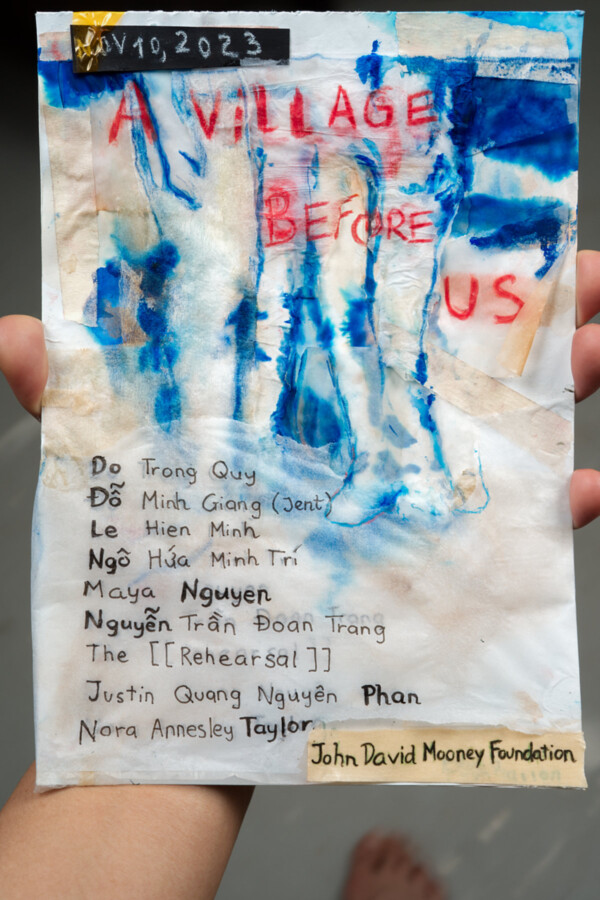 NOV 10, 2023
A VILLAGE
BEFORE
US
Do Trong Quy
Đỗ Minh Giang (Jent)
Le Hien Minh
Ngô Hứa Minh Trí
Maya Nguyen
Nguyễn Trần Đoan Trang
The [[Rehearsal]]
Justin Quang Nguyên Phan
Nora Annesley Taylor
John David Mooney Foundation